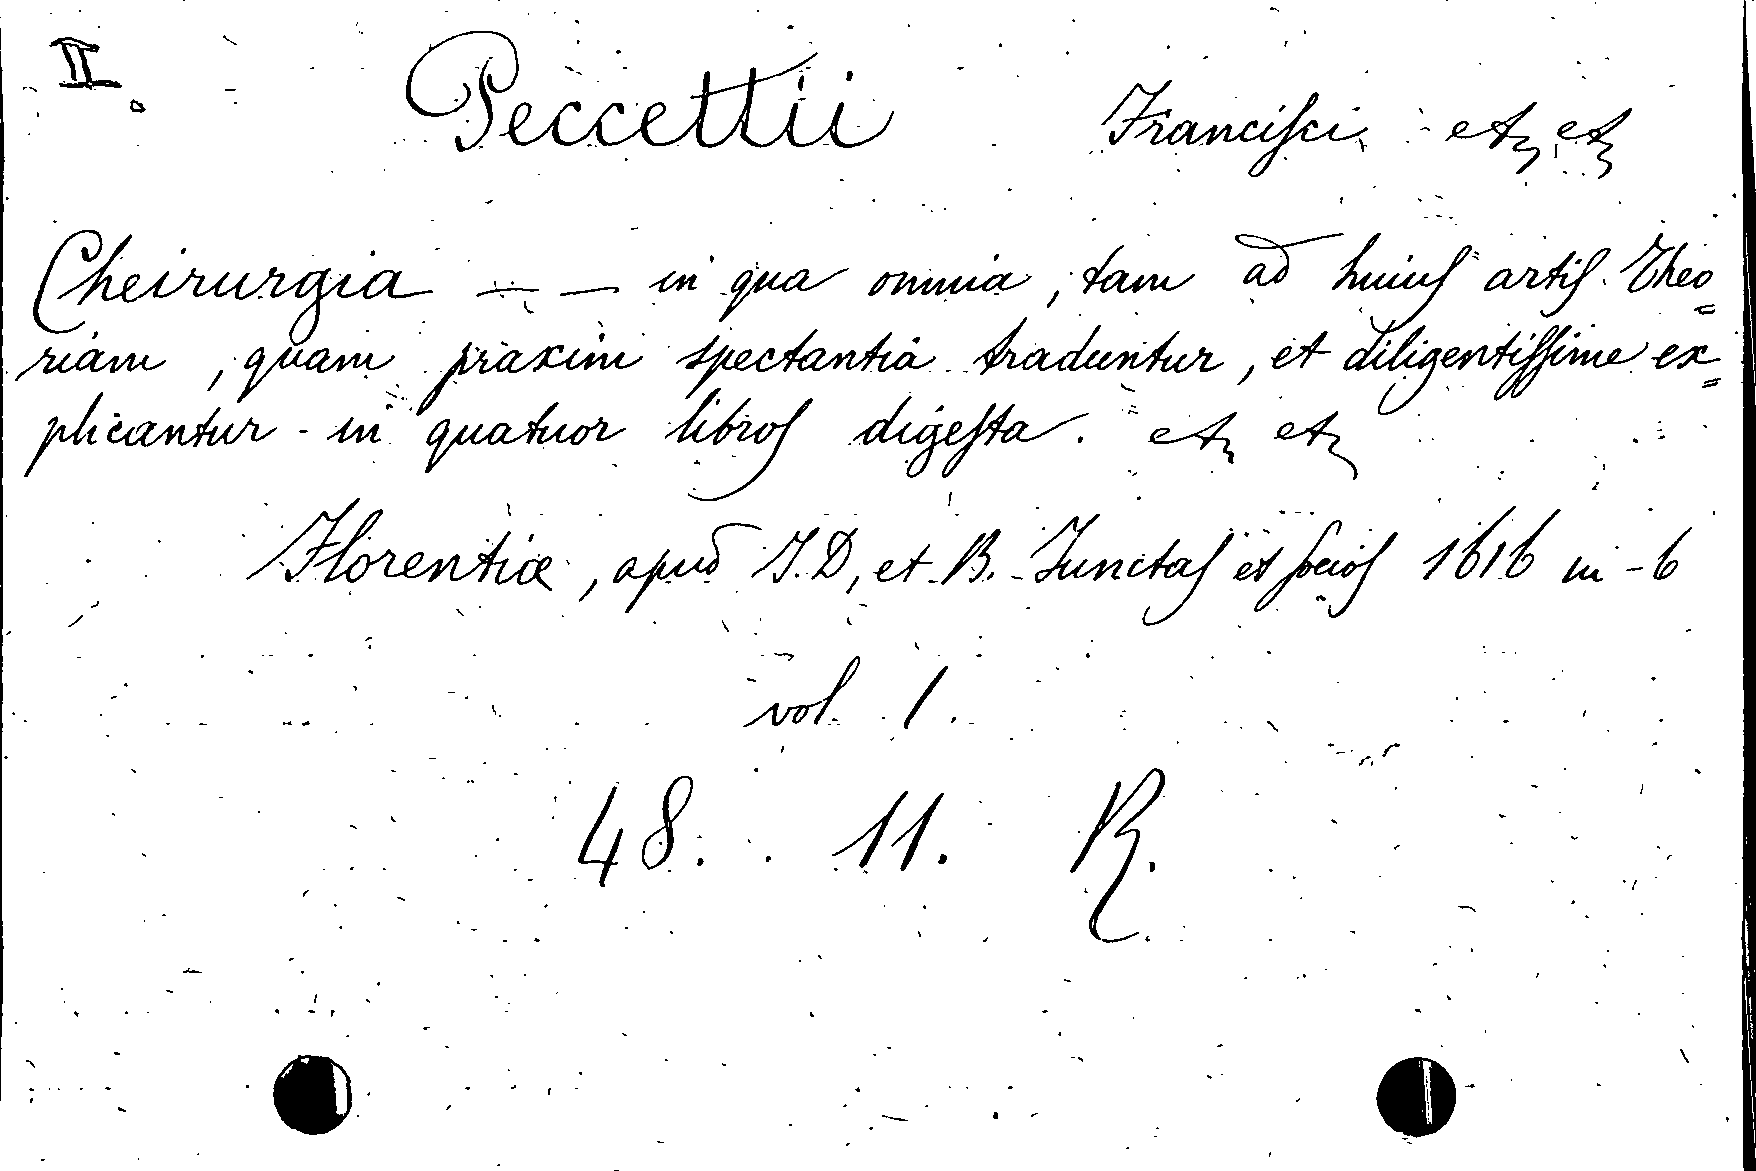 II.
Peccettii Francisci etc, etc
Cheirurgia — — in qua omnia, tam ad huius artis Theo=
riam, quam praxim spectantia traduntur, et diligentissime ex=
plicantur - in quatuor libros digesta. etc etc
Florentiæ, apud I. D, et B. Junctas et socios 1616 in-6
vol 1.
48. 11. R.